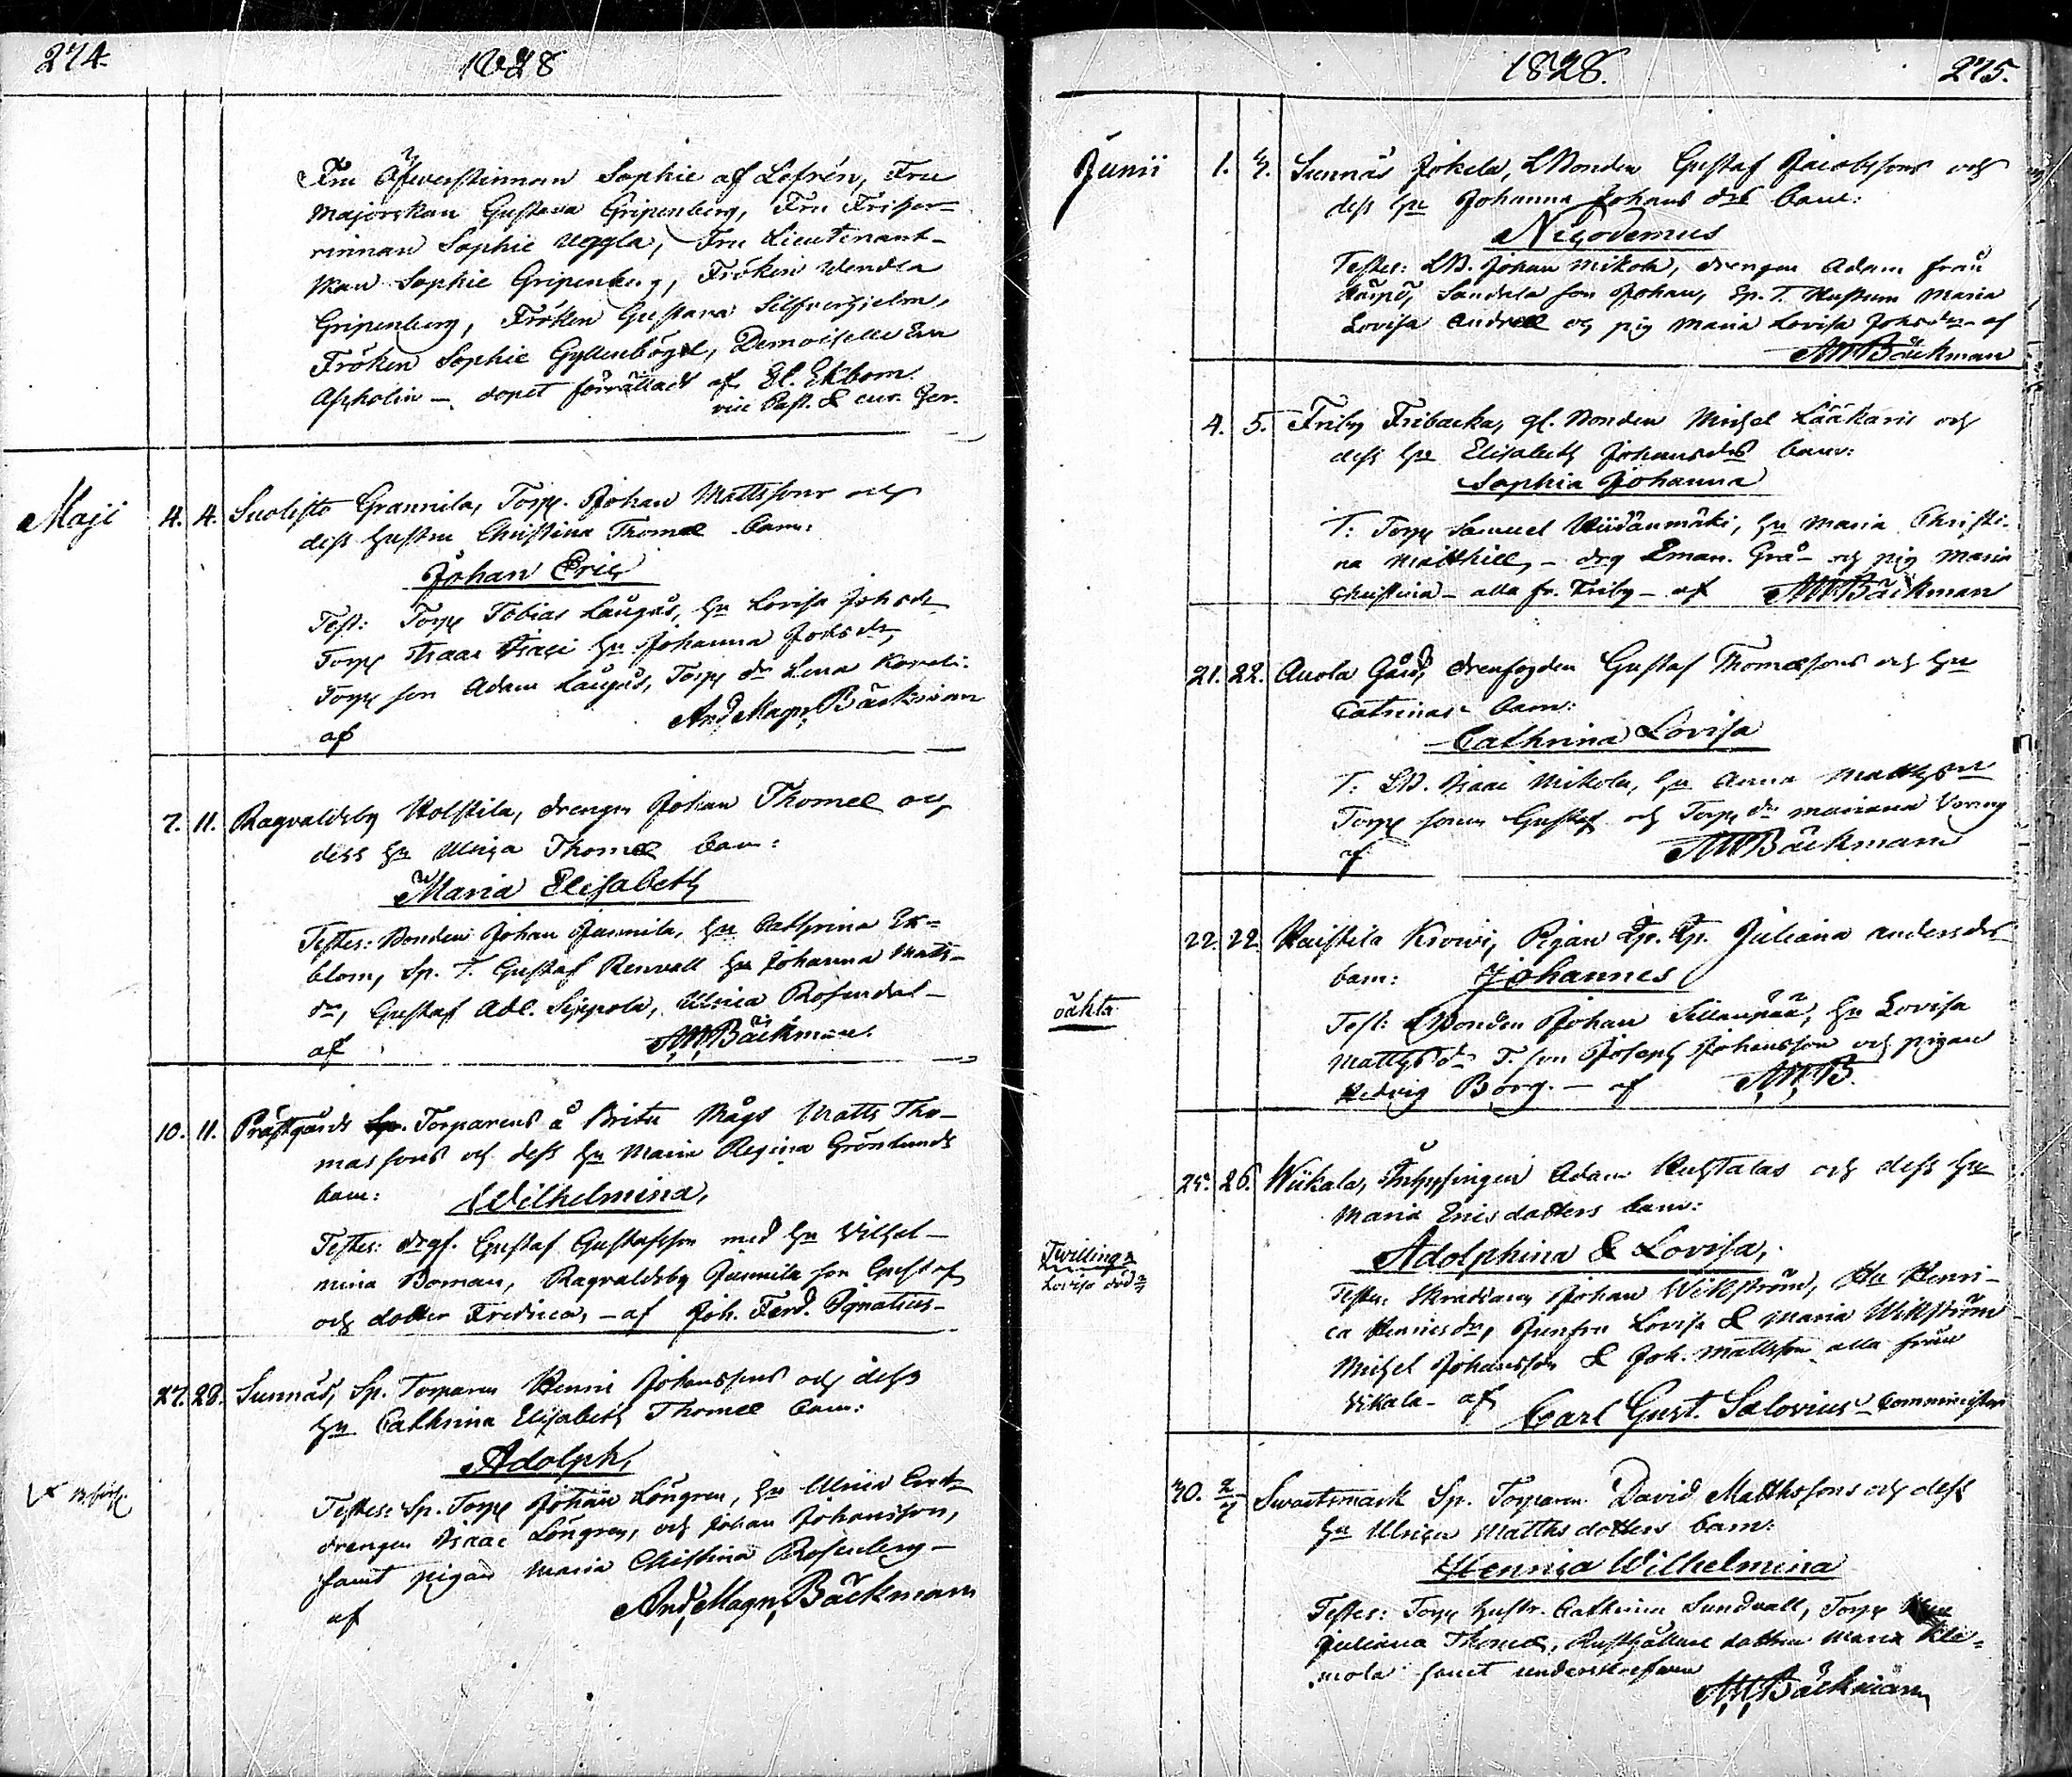 274.
1828
Fru Öfwerstinnan Sophie af Lefrén, Fru
Majorskan Gustava Gripenberg, Fru Friher-
rinnan Sophie Uggla, Fru Lieutenant-
skan Sophie Gripenberg, Fröken Wendla
Gripenberg, Fröken Gustava Silfverhjelm,
Fröken Sophie Gyllenbögel, Demoiselle Eva
Aspholin — dopet förrättadt af, El. Ekbom.
vice Past. & cur. ger.
Maji
4. 4. Suolisto Grannila, Torp. Johan Mattssons och
dess hustru Christina Thomæ barn:
Johan Eric
Test: Torp Tobias Laugus, hu Lovisa Johsdr
Torp Isaac hu Johanna Johsdr,
Torp son Adam Laugus, Torp dr Lena
af And. Magn. Bäckman
7. 11. Ragvaldsby Holstila, drengen Johan Thomæ och
dess hu Ulrica Thomæ barn:
Maria Elisabeth
Testes: Bonden Johan Junnila, hu Cathrina Ek-
blom, Sp. T. Gustaf Renvall hu Johanna Matts-
dr, Gustaf Adl. Sippola, Ulrica Rosendal —
af A.M. Bäckman.
10. 11. Prästgårds Torparens å Mågs Matts Tho-
mas sons och dess hu Maria Regina Grönlunds
barn: Wilhelmina,
Testes: drgs. Gustaf Gustafsson med hu Vilhel-
mina Boman, Ragvaldsby Junnila son Gustaf
och dotter Fredrica, — af Joh. Ferd. Ignatius —
27. 28. Sunnäs, Sp. Torparen Henric Johanssons och dess
hu Cathrina Elisabeth Thomæ barn:
Adolph,
Testes: Sp. Torp Johan Löngren, hu Ulrica
drengen Isaac Löngren, och Johan Johansson,
samt pigan Maria Christina Rosenberg —
af And. Magn. Bäckman
1828.
275.
Junii
1. 3. Sunnäs Jokela, LBonden Gustaf Jacobssons och
dess hu Johanna Johans drs barn:
Nicodemus
Testes: LB. Johan Mikola, drengen Adam från
Sandala son Johan, Sp. T. Hustrun Maria
Lovisa Andreæ och pig Maria Lovisa Johsdr — af
AMBäckman
4. 5. Friby Fribacka, gl. Bonden Michel Lääkaris och
dess hu Elisabeth Johansdrs barn:
Sophia Johanna
T: Torp Samuel Wiidanmäki, hu Maria Christi-
na Matthiæ, — drg Eman. Grå — och pig Maria
Christina — alla fr. Friby — af AMBäckman
21. 22. Auola Gård, drenfogden Gustaf Thomæsons och hu
Catrinas barn:
Cathrina Lovisa
T: LB. Isaac Mikola, hu Anna Matthsdr
Torp sonen Gustaf och Torp dr Mariana
af AMBäckman
oäkta
22. 22. Haistila Krowi, Pigan Juliana Andersdrs
barn: Johannes
Test: LBonden Johan Sillanpää, hu Lovisa
Matths dr T. son Joseph Johansson och pigan
Hedvig Borg. — af A.M.B.
Twillingar
Lovisa död
25. 26. Wiikala, Inhysingen Adam Huhtalas och dess hu
Maria Ericsdotters barn:
Adolphina & Lovisa,
Testes: Skräddaren Johan Wikström, Hu Henri-
ca Henricsdr, Junfru Lovisa & Maria Wikström
Michel Johansson & Joh. Mattsson alla från
Vikala — af Carl Gust. Salovius — Comminister
30. 2/7 Swartsmark Sp. Torparen David Matthssons och dess
hu Ulrica Matthsdotters barn:
Hennia Wilhelmina
Testes: Torp hustr. Cathrina Sundvall, Torp
Juliana Thomæ, Rusthållare dottren Maria Kle-
mola samt underskrefven
A.M. Bäckman